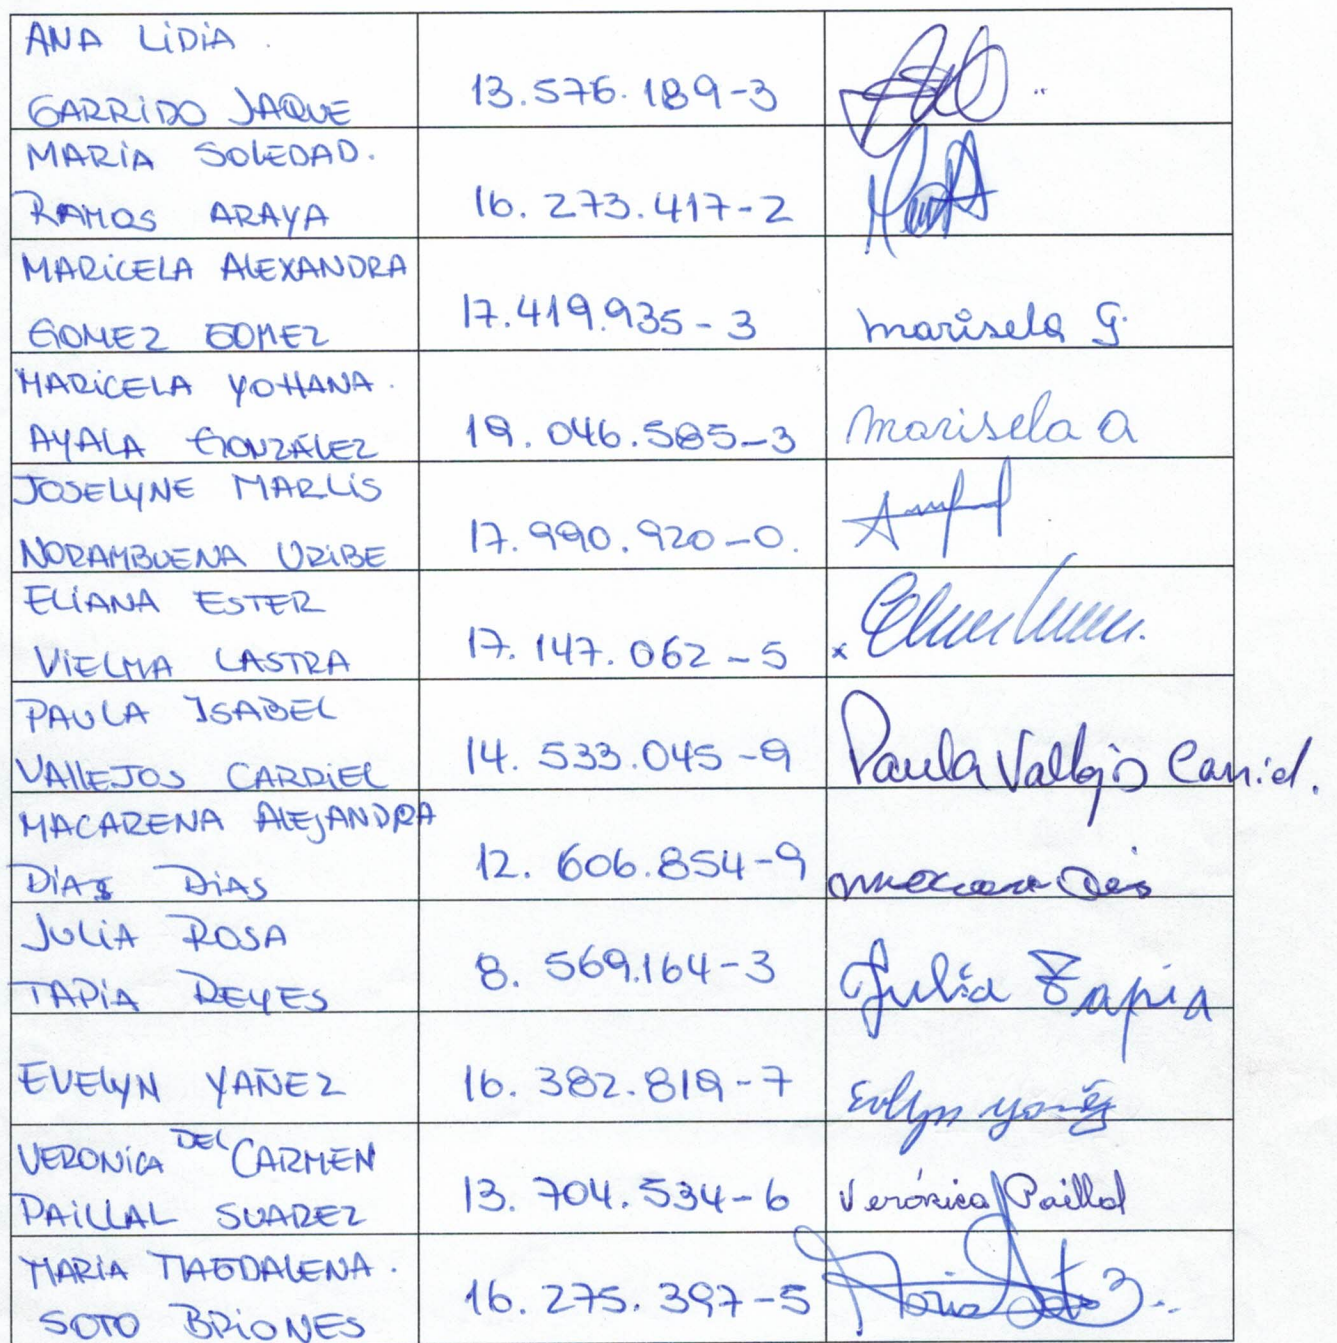 ANA LiDiA
GARRiDO JAQUE 13.576.189-3
MARiA SOLEDAD.
RAMOS ARAYA 16.273.417-2
MARiCELA ALEXANDRA
GOMEZ GOMEZ 17.419.935-3 marisela G.
MARiCELA YOHANA.
AYALA GONZÁLEZ 19.046.585-3 marisela a
JOSELYNE MARLiS
NORAMBUENA URiBE 17.990.920-0.
ELiANA ESTER
ViELMA LASTRA 17.147.062-5 x
PAULA ISABEL
VALLEJOS CARDiEL 14.533.045-9 Paula Vallejos
MACARENA ALEJANDRA
DiAS DiAS 12.606.854-9
JULiA ROSA
TAPiA REYES 8.569.164-3 Julia Tapia
EVELYN YAÑEZ 16.382.819-7 Evelyn yañez
VERONiCA DEL CARMEN
PAiLLAL SUAREZ 13.704.534-6 Verónica Paillal
MARiA MAGDALENA.
SOTO BRiONES 16.275.397-5 Maria Soto B..